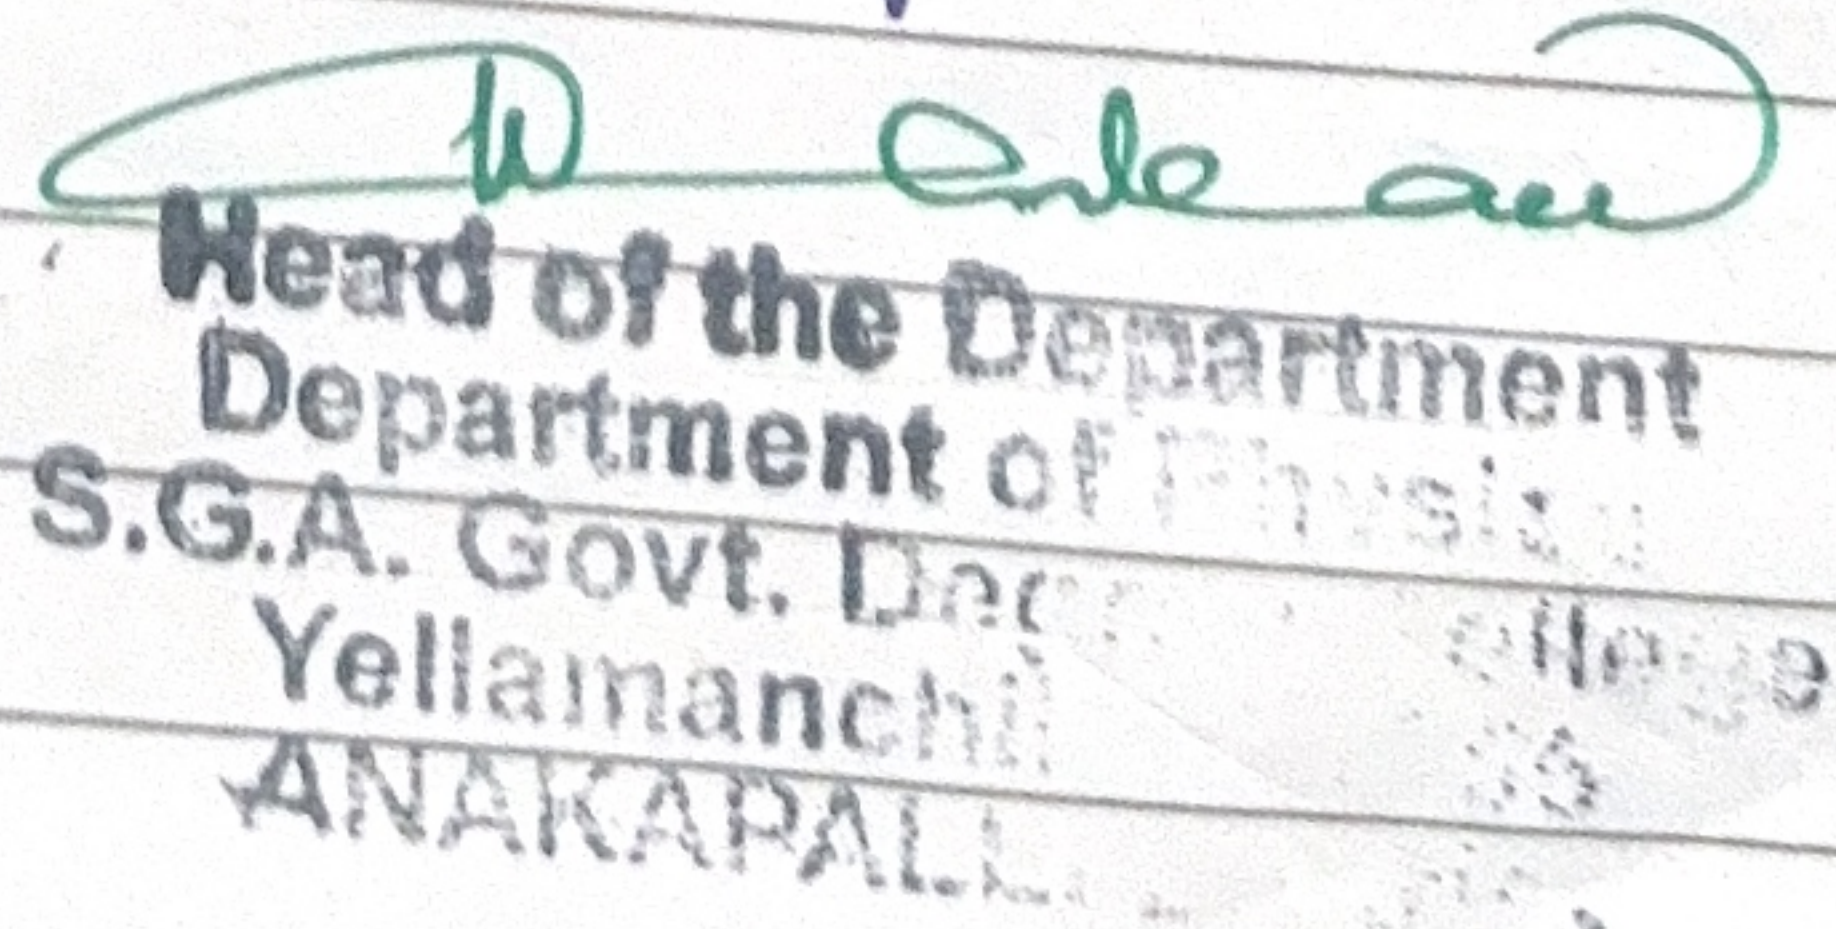 Head of the Department
Department of Physics
S.G.A. Govt. Degree College
Yellamanchili
ANAKAPALLI